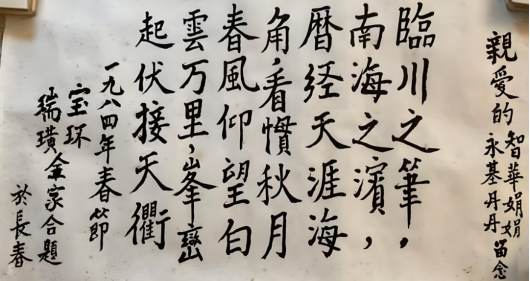 親愛的
智華娟娟
永基丹丹
留念
臨川之筆，
南海之濱，
曆经天涯海
角，看慣秋月
春風仰望白
雲万里，峯巒
起伏接天衢
一九八四年春節
宝珠
瑞璜全家合題
於長春